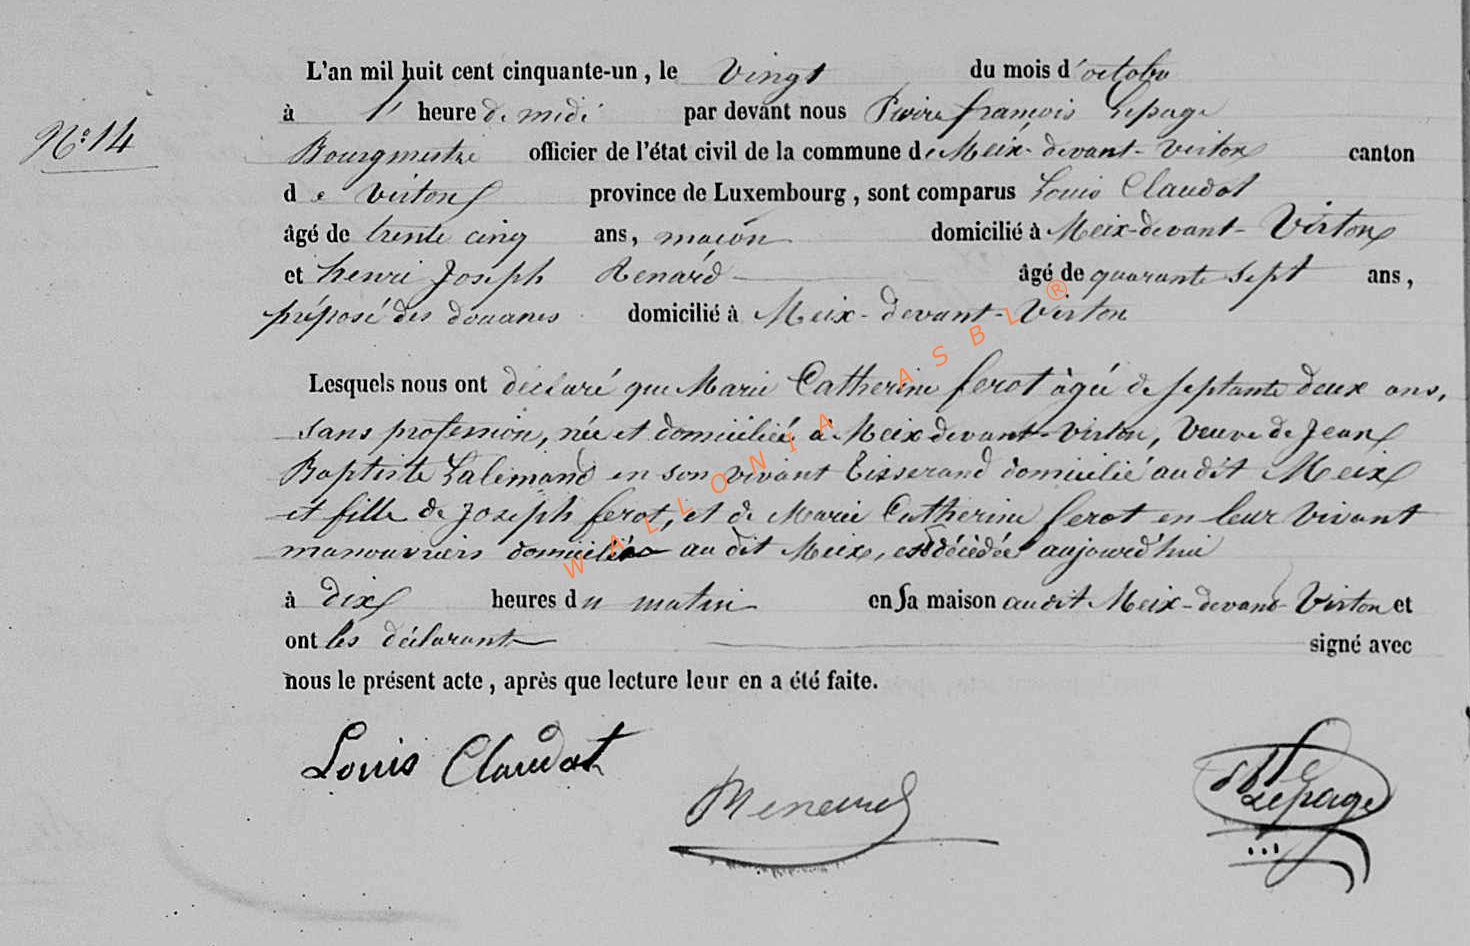 L'an mil huit cent cinquante-un, le vingt du mois d'octobre
à l' heure de midi par devant nous Pierre françois Lepage
N°. 14
Bourgmestre officier de l'état civil de la commune de Meix-devant-Virton canton
de Virton province de Luxembourg, sont comparus Louis Claudot
âgé de trente cinq ans, maçon domicilié à Meix-devant-Virton
et henri Joseph Renard âgé de quarante sept ans,
préposé des douanes domicilié à Meix-devant-Virton
Lesquels nous ont déclaré que Marie Catherine ferot âgée de septante deux ans,
sans profession, née et domiciliée à Meix devant-virton, Veuve de Jean
Baptiste Lalemand en son vivant Tisserand domicilié audit Meix
et fille de Joseph ferot, et de Marie Catherine ferot en leur vivant
manouvriers domiciliés au dit Meix, est décédée aujourd'hui
à dix heures du matin en sa maison audit Meix-devant-Virton et
ont les déclarant signé avec
nous le présent acte, après que lecture leur en a été faite.
Louis Claudot
Renard
Lepage
WALLONIA ASBL ®